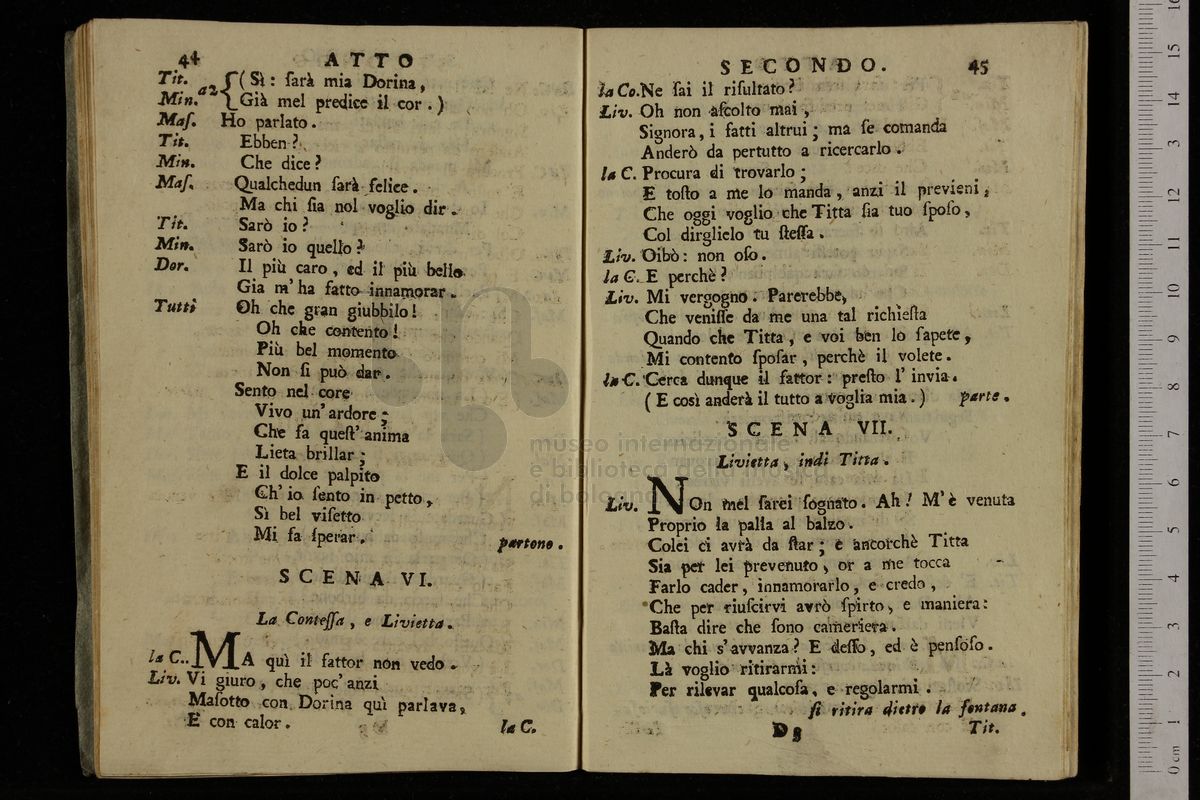 44 ATTO
Tit. a2 { ( Sì : ſarà mia Dorina ,
Min. Già mel predice il cor . )
Maſ. Ho parlato .
Tit. Ebben ?
Min. Che dice ?
Maſ. Qualchedun ſarà felice .
Ma chi ſia nol voglio dir .
Tit. Sarò io ?
Min. Sarò io quello ?
Dor. Il più caro , ed il più bello
Gia m' ha fatto innamorar .
Tutti Oh che gran giubbilo !
Oh che contento !
Più bel momento
Non ſi può dar .
Sento nel core
Vivo un' ardore ;
Che fa queſt' anima
Lieta brillar ;
E il dolce palpito
Ch' io ſento in petto ,
Sì bel viſetto
Mi fa ſperar .
partono .
SCENA VI.
La Conteſſa , e Livietta .
la C.. MA quì il fattor non vedo .
Liv. Vi giuro , che poc' anzi
Maſotto con Dorina quì parlava ,
E con calor .
la C.
SECONDO. 45
la Co. Ne ſai il riſultato ?
Liv. Oh non aſcolto mai ,
Signora , i fatti altrui ; ma ſe comanda
Anderò da pertutto a ricercarlo .
la C. Procura di trovarlo ;
E toſto a me lo manda , anzi il previeni ,
Che oggi voglio che Titta ſia tuo ſpoſo ,
Col dirglielo tu ſteſſa .
Liv. Oibò : non oſo .
la C. E perchè ?
Liv. Mi vergogno . Parerebbe,
Che veniſſe da me una tal richieſta
Quando che Titta , e voi ben lo ſapete ,
Mi contento ſpoſar , perchè il volete .
la C. Cerca dunque il fattor : preſto l' invia .
( E così anderà il tutto a voglia mia . ) parte .
SCENA VII.
Livietta , indi Titta .
Liv. NOn mel ſarei ſognato . Ah ! M' è venuta
Proprio la palla al balzo .
Colei ci avrà da ſtar ; e ancorchè Titta
Sia per lei prevenuto , or a me tocca
Farlo cader , innamorarlo , e credo ,
Che per riuſcirvi avrò ſpirto , e maniera :
Baſta dire che ſono cameriera .
Ma chi s' avvanza ? E deſſo , ed è penſoſo .
Là voglio ritirarmi :
Per rilevar qualcoſa , e regolarmi .
ſi ritira dietro la fontana .
D 3 Tit.
museo internazionale
e biblioteca della musica
di bologna
0 cm 1 2 3 4 5 6 7 8 9 10 11 12 13 14 15 16